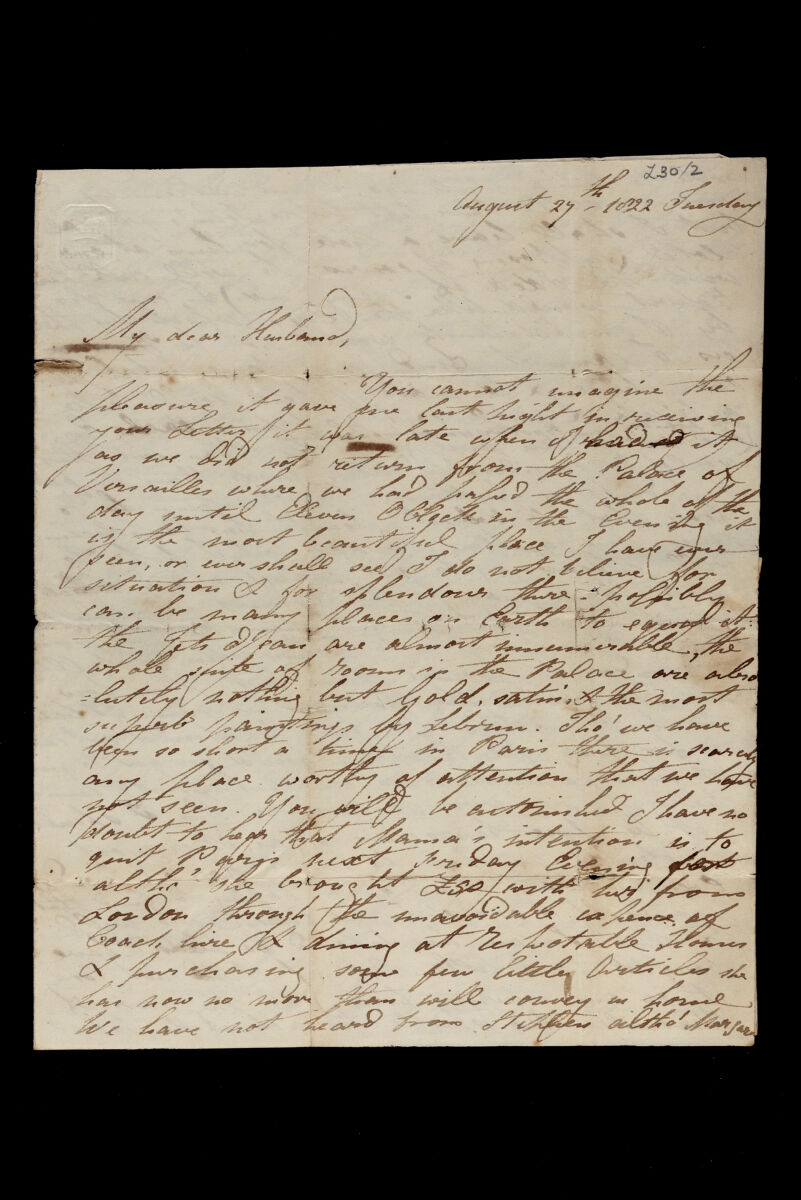 L30/2
August 27th 1822 Tuesday
My dear Husband,
You cannot imagine the
pleasure it gave me last night in receiving
your Letter it was late when I had it
as we did not return from the Palace of
Versailles where we had passed the whole of the
day until Eleven OClock in the Evening it
is the most beautiful place I have ever
seen, or ever shall see I do not believe for
situation & for splendour there possibly
can be many places on Earth to equal it.
the Jets d'eau are almost innumerable, the
whole suite of rooms in the Palace are abso
=lutely nothing but Gold, satin & the most
superb paintings by Lebrun. Tho' we have
been so short a time in Paris there is scarcely
any place worthy of attention that we have
not seen. You will be astonished I have no
doubt to hear that Mama's intention is to
quit Paris next Friday Evening for
altho' she brought £50 with her from
London through the unavoidable expence of
Coach hire & dining at respectable Houses
& purchasing some few little Articles she
has now no more than will convey us home
We have not heard from Stephen altho' Margaret